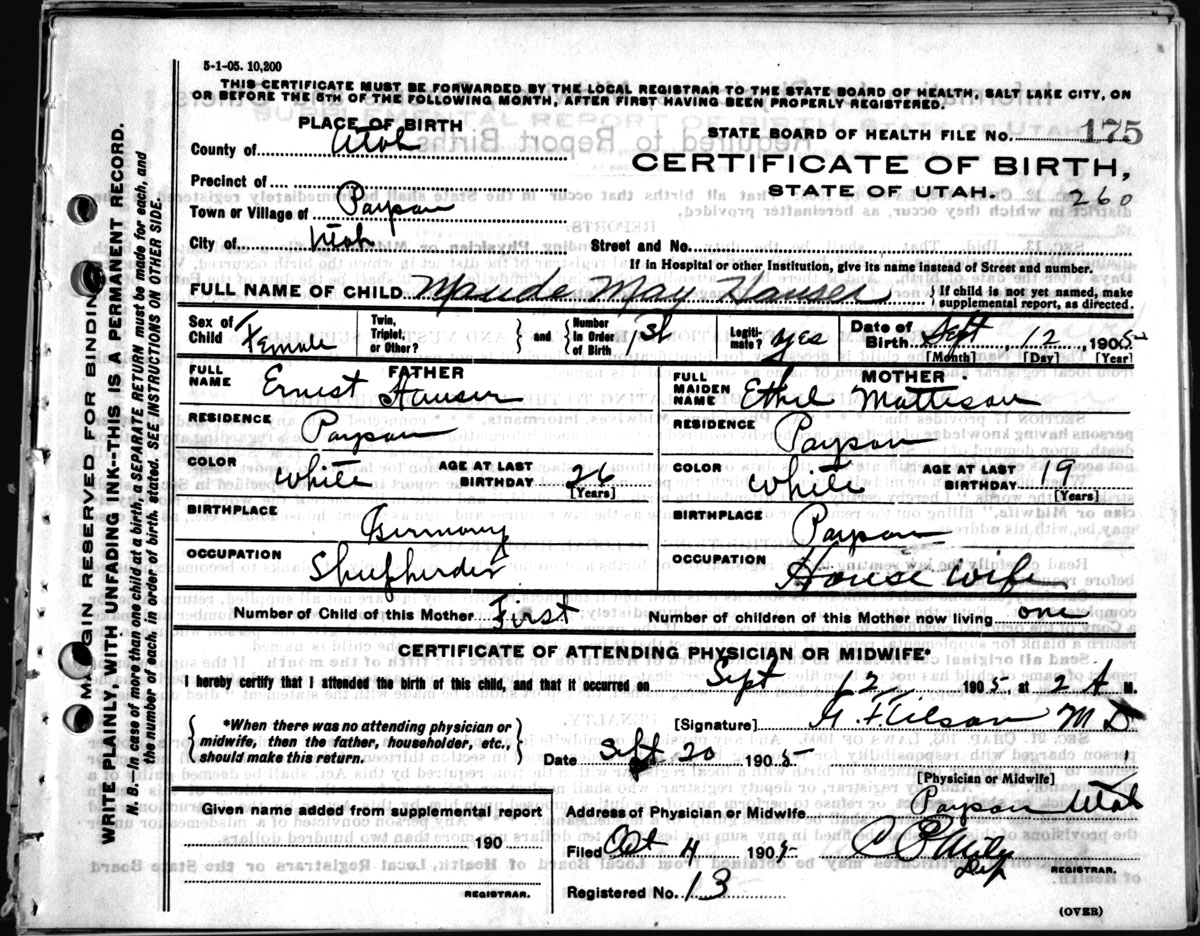 5-1-05. 10,200
THIS CERTIFICATE MUST BE FORWARDED BY THE LOCAL REGISTRAR TO THE STATE BOARD OF HEALTH, SALT LAKE CITY, ON
OR BEFORE THE 5TH OF THE FOLLOWING MONTH, AFTER FIRST HAVING BEEN PROPERLY REGISTERED.
PLACE OF BIRTH
STATE BOARD OF HEALTH FILE NO. 175
County of Utah
CERTIFICATE OF BIRTH,
Precinct of
STATE OF UTAH. 260
Town or Village of Payson
City of Utah Street and No.
If in Hospital or other Institution, give its name instead of Street and number.
FULL NAME OF CHILD Maude May Hauser { If child is not yet named, make
supplemental report, as directed.
Sex of Child Female Twin, Triplet, or Other? } and { Number In Order of Birth 1st Legiti-mate? yes Date of Birth Sept 12, 1905
[Month] [Day] [Year]
FATHER
FULL NAME Ernest Hauser
MOTHER
FULL MAIDEN NAME Ethel Mattison
RESIDENCE Payson
RESIDENCE Payson
COLOR White AGE AT LAST BIRTHDAY 26 [Years]
COLOR White AGE AT LAST BIRTHDAY 19 [Years]
BIRTHPLACE Germany
BIRTHPLACE Payson
OCCUPATION Sheepherder
OCCUPATION House wife
Number of Child of this Mother First Number of children of this Mother now living one
CERTIFICATE OF ATTENDING PHYSICIAN OR MIDWIFE*
I hereby certify that I attended the birth of this child, and that it occurred on Sept 12, 1905, at 2 A M.
{ *When there was no attending physician or
midwife, then the father, householder, etc.,
should make this return. }
[Signature] M D
Date Sept 20 1905
[Physician or Midwife]
Given name added from supplemental report
190
REGISTRAR.
Address of Physician or Midwife Payson Utah
Filed Oct 4 1905
Dep REGISTRAR.
Registered No. 13
(OVER)
MARGIN RESERVED FOR BINDING
WRITE PLAINLY, WITH UNFADING INK--THIS IS A PERMANENT RECORD.
N. B.--In case of more than one child at a birth, a SEPARATE RETURN must be made for each, and
the number of each, in order of birth, stated. SEE INSTRUCTIONS ON OTHER SIDE.